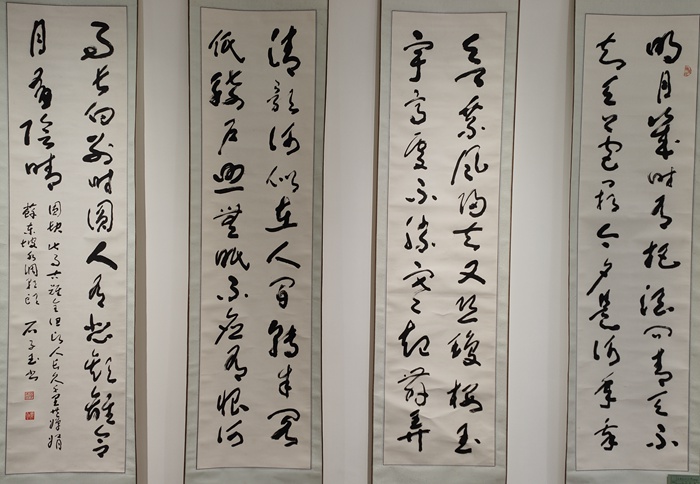 明月幾時有把酒問青天不
知天上宮闕今夕是何年我
欲乘風歸去又恐瓊樓玉
宇高處不勝寒起舞弄
清影何似在人間轉朱閣
低綺戶照無眠不應有恨何
事長向別時圓人有悲歡離合
月有陰晴
圓缺此事古難全但願人長久千里共嬋娟
蘇東坡水調歌頭